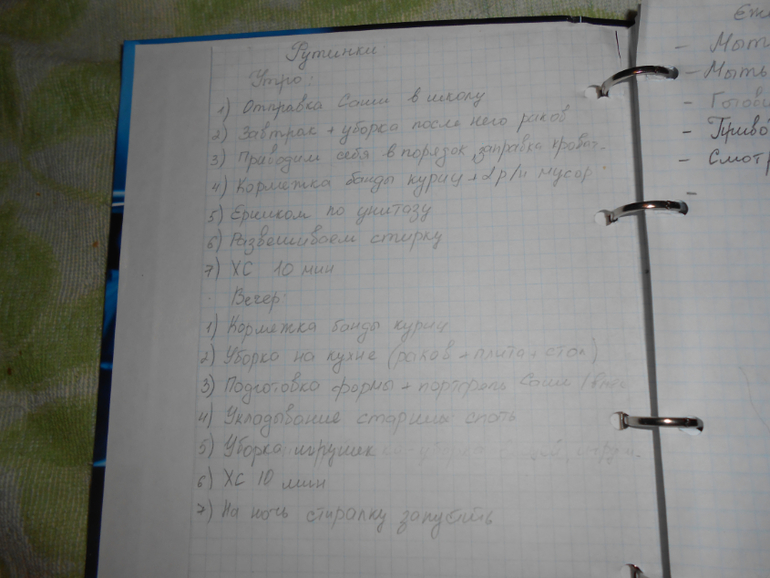 Рутинки
Утро:
1) Отправка Саши в школу
2) Завтрак + уборка после него раков
3) Приводим себя в порядок, заправка кроват.
4) Кормежка банды куриц + 2 р/н мусор
5) Ершиком по унитазу
6) Развешиваем стирку
7) ХС 10 мин
Вечер:
1) Кормежка банды куриц
2) Уборка на кухне (раков + плита + стол)
3) Подготовка формы + портфель Саши
4) Укладывание старших спать
5) Уборка игрушек
6) ХС 10 мин
7) На ночь стиралку запустить
- Мыть
- Готови
- Приво
- Смотр
-